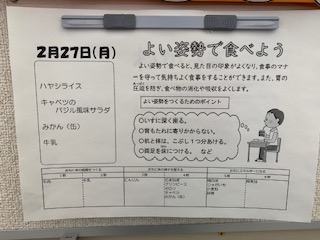 2月27日(月)
ハヤシライス
キャベツの
バジル風味サラダ
みかん(缶)
牛乳
よい姿勢で食べよう
よい姿勢で食べると、見た目の印象がよくなり、食事のマナ
ーを守って気持ちよく食事をすることができます。また、胃の
圧迫を防ぎ、食べ物の消化や吸収をよくします。
よい姿勢をつくるためのポイント
○いすに深く座る。
○背もたれに寄りかからない。
○机と体は、こぶし1つ分あける。
○両足を床につける。 など
1群
2群
3群
4群
5群
6群
牛乳
にんじん